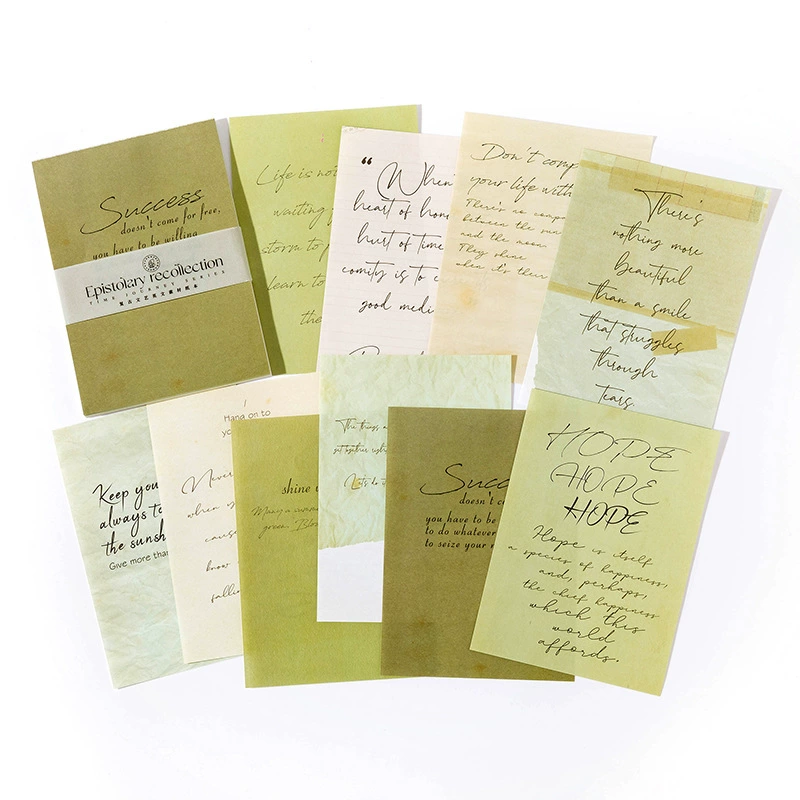 Success
doesn't come for free,
you have to be willing
Epistolary recollection
TIME JOURNEY SERIES
复古文艺英文素材纸本
Life is not
waiting
storm to p
learn to
the
“ When
heart of hon
hurt of time
comity is to c
good medi
Don't comp
your life with
There's no compa
between the sun
and the moon
They shine
when it's their
There's
nothing more
beautiful
than a smile
that struggles
through
tears.
Keep you
always to
the sunsh
Give more than
Hang on to
yo
Never
when y
cause
know
fallin
shine
Many a
green. Bloo
The things a
Let's do it
Succ
doesn't c
you have to be
to do whatever
to seize your
HOPE
HOPE
HOPE
Hope is itself
a species of happiness,
and, perhaps,
the chief happiness
which this
world
affords.